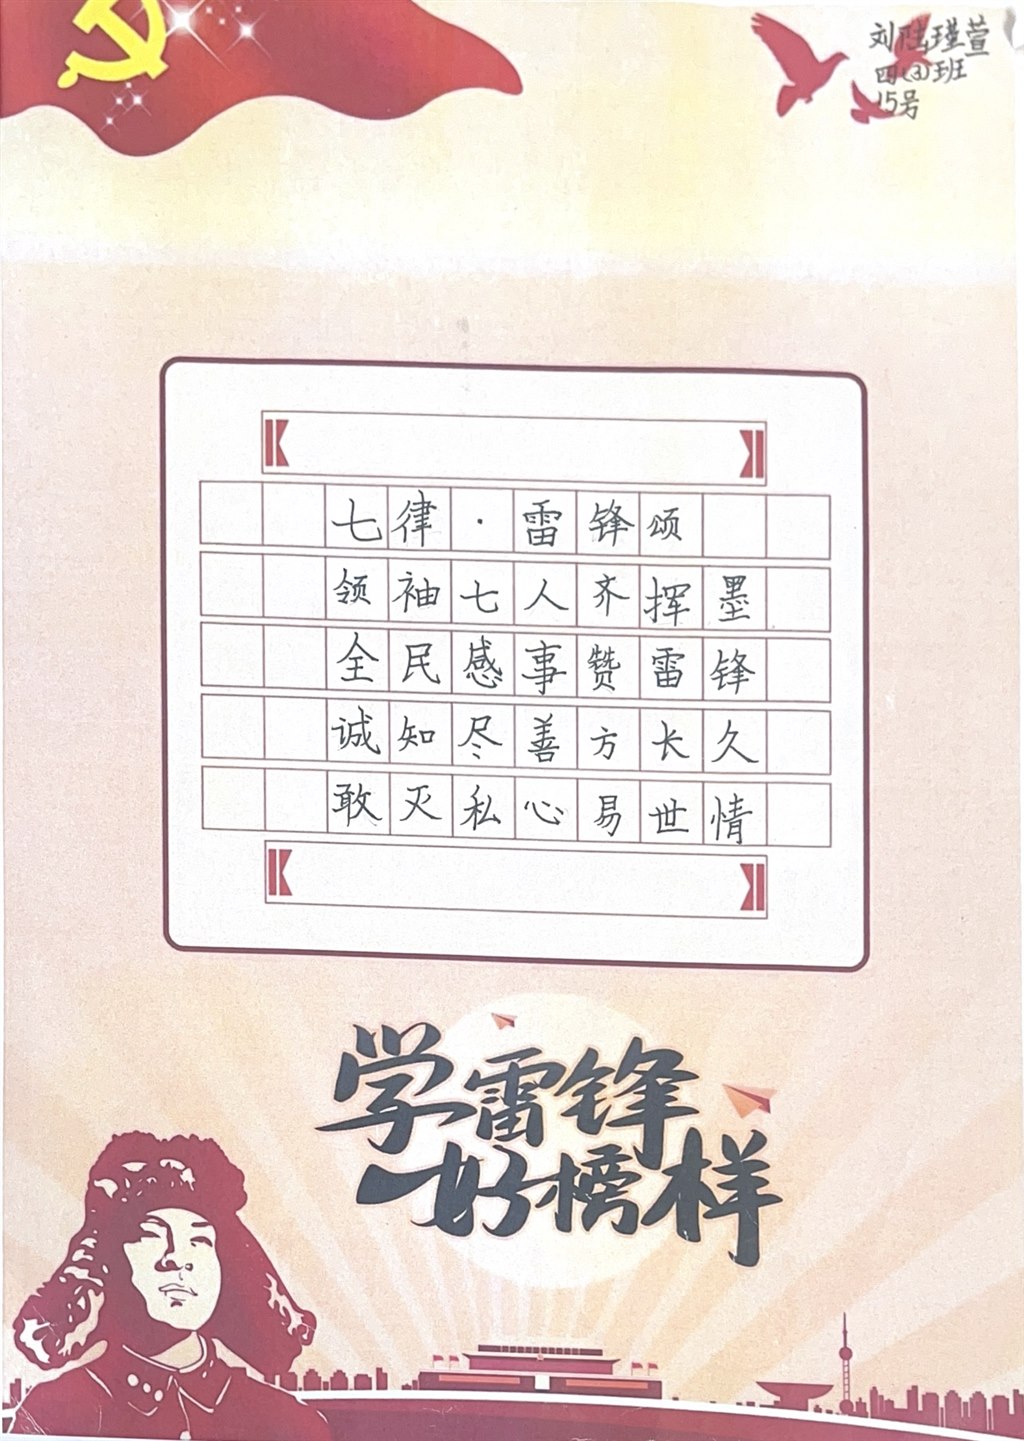 刘陆瑾萱
四(3)班
15号
七律·雷锋颂
领袖七人齐挥墨
全民感事赞雷锋
诚知尽善方长久
敢灭私心易世情
学雷锋
好榜样